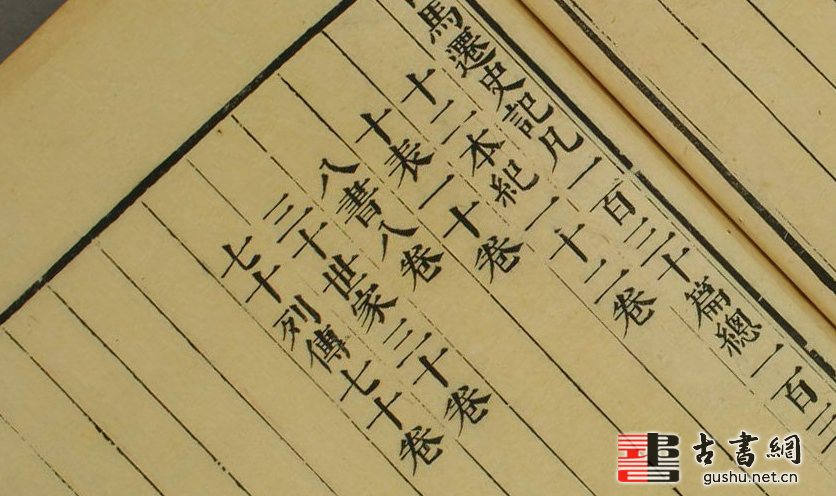 馬遷史記凡一百三十篇總一百三
十二本紀一十二卷
十表一十卷
八書八卷
三十世家三十卷
七十列傳七十卷
古書網
gushu.net.cn